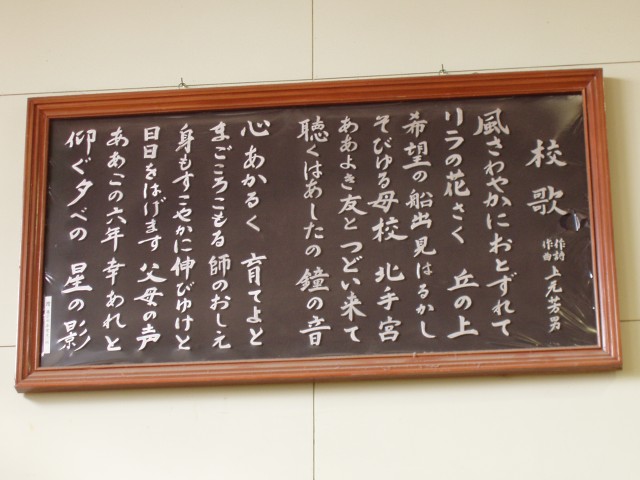 校歌
作詞
作曲
上元芳男
風さわやかにおとずれて
リラの花さく 丘の上
希望の船出見はるかし
そびゆる母校 北手宮
ああよき友と つどい来て
聴くはあしたの 鐘の音
心あかるく 育てよと
まごころこもる 師のおしえ
身もすこやかに 伸びゆけと
日日をはげます 父母の声
ああこの六年 幸あれと
仰ぐ夕べの 星の影